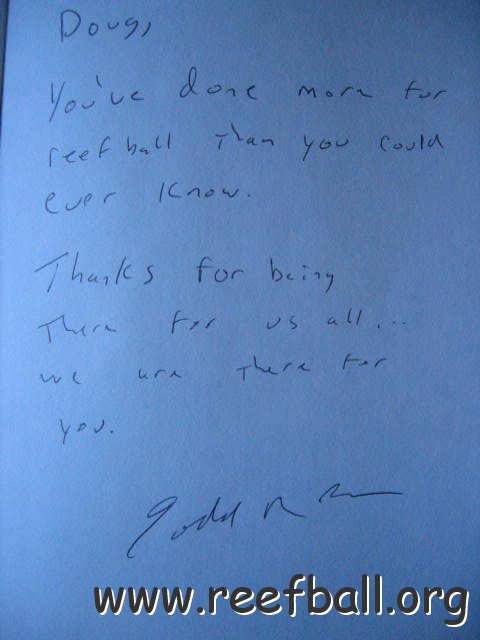 Doug,
You've done more for
reef ball than you could
ever know.
Thanks for being
There for us all...
we are there for
you.
Todd
www.reefball.org